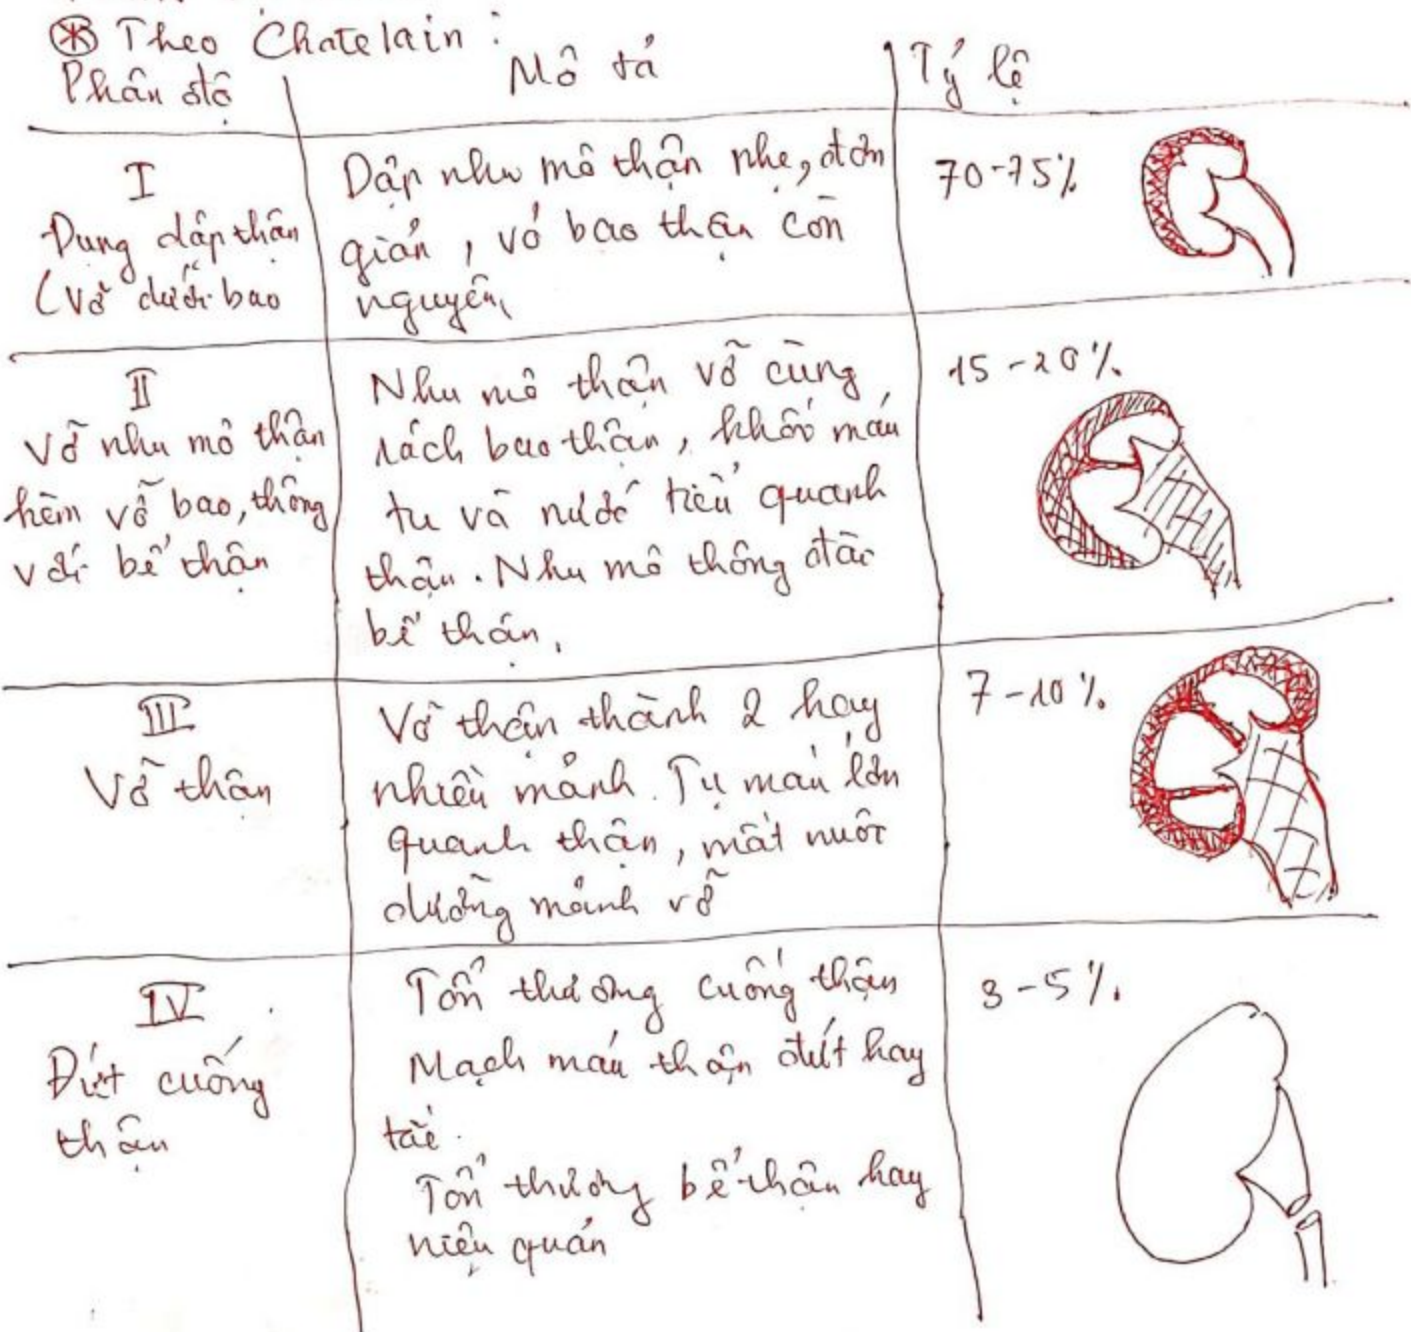 Theo Chatelain :
Phân độ Mô tả Tỷ lệ
I
Đụng dập thận
(Vỡ dưới bao
Dập nhu mô thận nhẹ, đơn
giản, vỏ bao thận còn
nguyên,
70-75%
II
Vỡ nhu mô thận
kèm vỡ bao, thông
với bể thận
Nhu mô thận vỡ cùng
rách bao thận, khối máu
tụ và nước tiểu quanh
thận. Nhu mô thông đài
bể thận.
15-20%
III
Vỡ thận
Vỡ thận thành 2 hay
nhiều mảnh. Tụ máu lớn
quanh thận, mất nuôi
dưỡng mảnh vỡ
7-10%
IV
Đứt cuống
thận
Tổn thương cuống thận
Mạch máu thận đứt hay
tắc.
Tổn thương bể thận hay
niệu quản
3-5%.